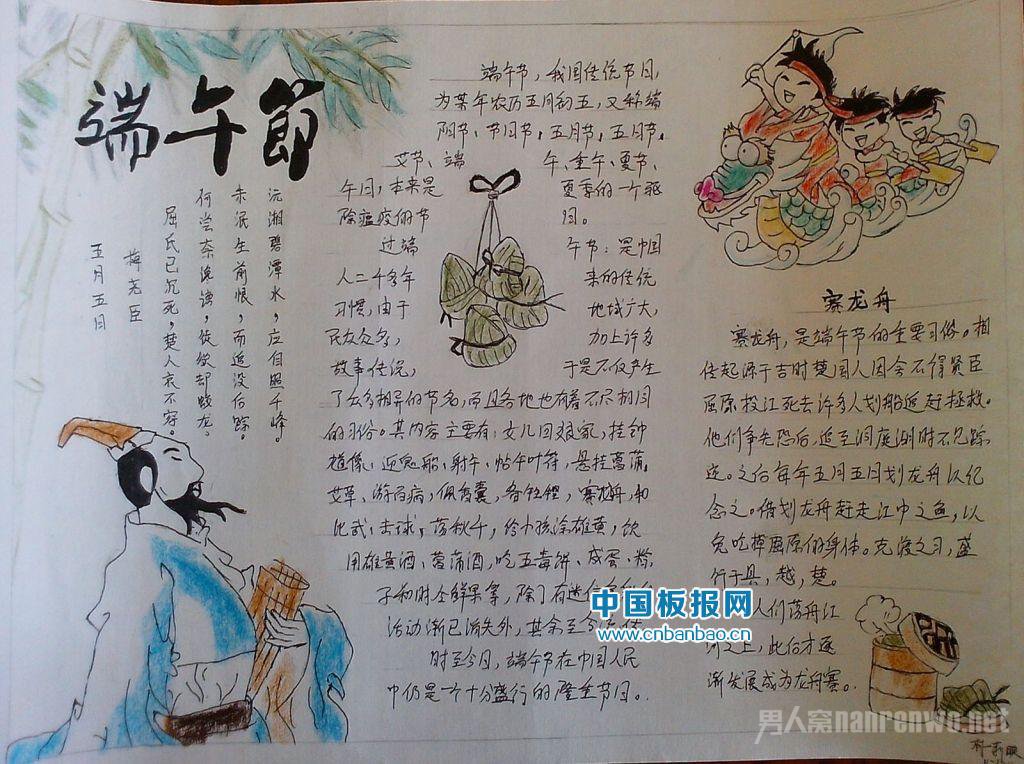 端午節
五月五日
梅尧臣
屈氏已沉死，楚人哀不容。
何尝奈谗谤，徒欲却蛟龙。
未泯生前恨，而追没后踪。
沅湘碧潭水，应自照千峰。
端午节，我国传统节日，
为某年农历五月初五，又称端
阳节、节日节，五月节，五月节，
艾节、端 午、重午、夏节、
午日，本来是 夏季的一个驱
除瘟疫的节 日。
过端 午节：是中国
人二千多年 来的传统
习惯，由于 地域广大，
民众众多， 加上许多
故事传说， 于是不仅产生
了众多相异的节名，而且各地也有着不尽相同
的习俗。其内容主要有：女儿回娘家，挂钟
馗像、迎鬼船、射午、帖午叶符，悬挂菖蒲，
艾草、游百病，佩香囊，备牲醴，赛龙舟，和
比武，击球，荡秋千，给小孩涂雄黄，饮
用雄黄酒、菖蒲酒，吃五毒饼、咸蛋、粽
子和时令鲜果拿，除了有迷信色彩的
活动渐已消失外，其余至今流传
时至今日，端午节在中国人民
中仍是一个十分盛行的隆重节日。
赛龙舟
赛龙舟，是端午节的重要习俗。相
传起源于古时楚国人因舍不得贤臣
屈原投江死去许多人划船追赶拯救。
他们争先恐后，追至洞庭湖时不见踪
迹。之后每年五月五月划龙舟以纪
念之。借划龙舟赶走江中之鱼，以
免吃掉屈原的身体。竞渡之习，盛
行于县，越，楚。
人们荡舟江
河之上，此后才逐
渐发展成为龙舟赛。
中国板报网
www.cnbanbao.cn
男人窝nanrenwo.net